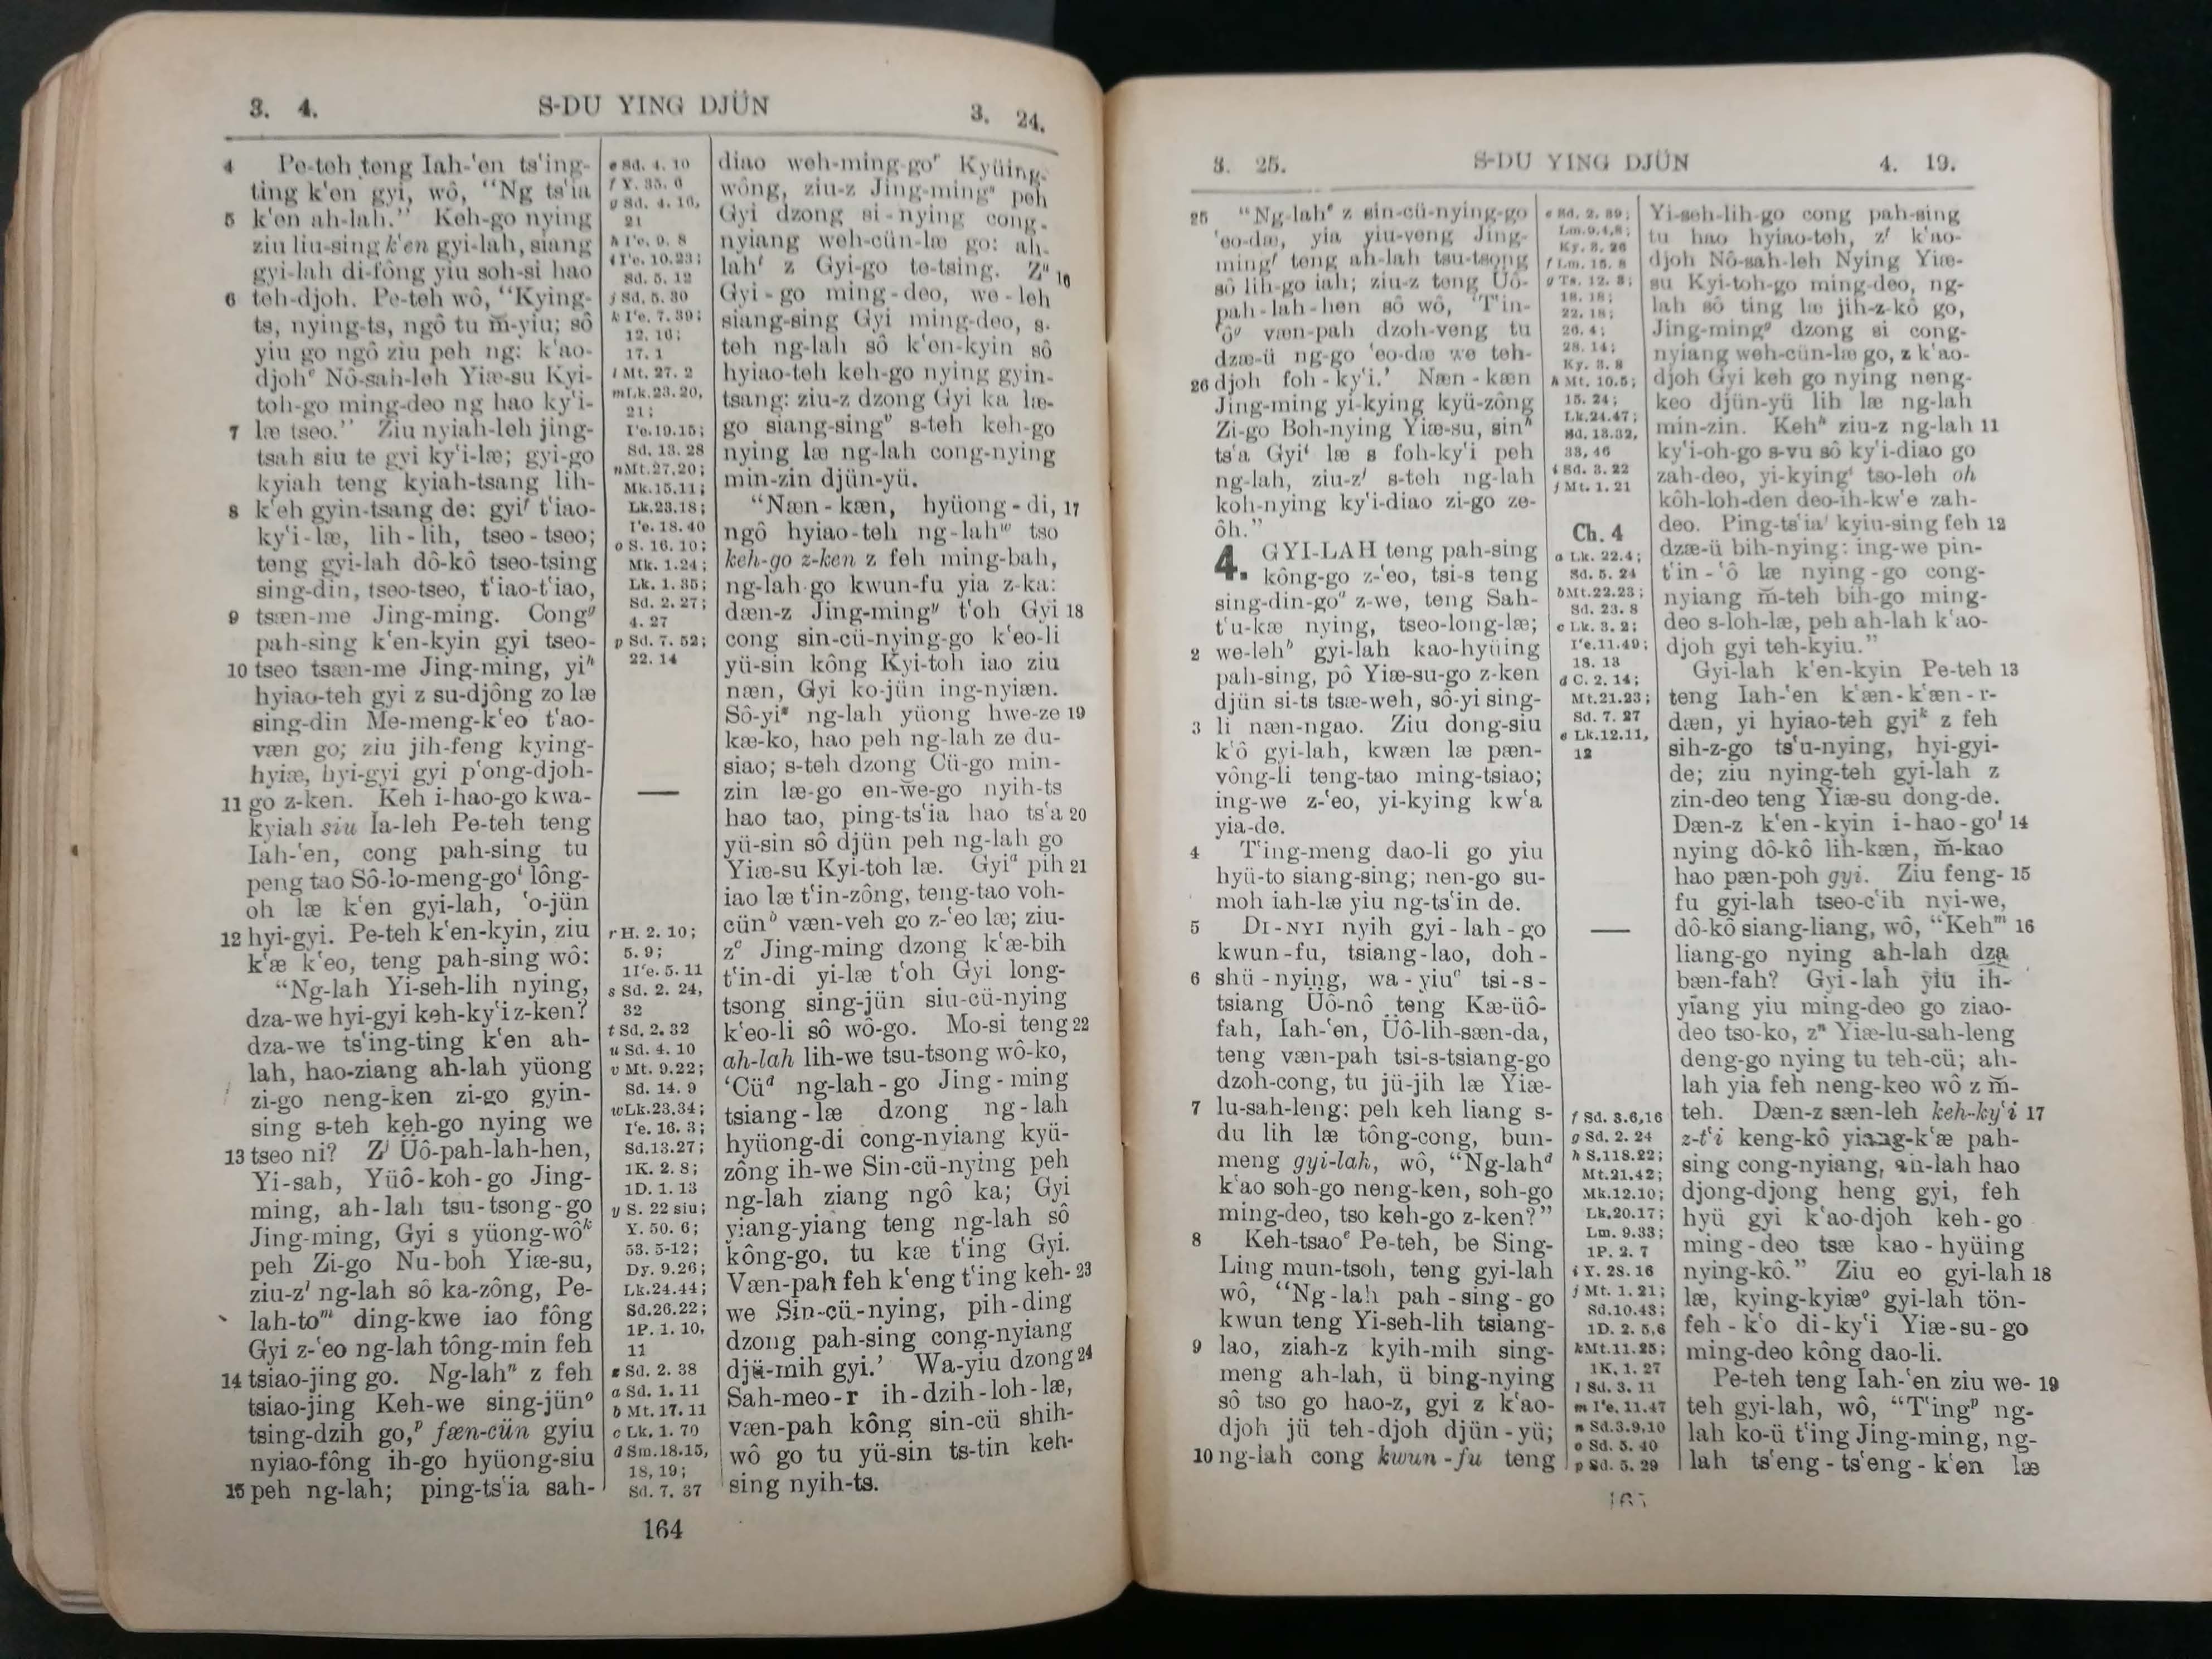 3. 4. S-DU YING DJÜN 3. 24.
4 Pe-teh teng Iah-'en ts'ing-
ting k'en gyi, wô, “Ng ts'ia
5 k'en ah-lah.” Keh-go nying
ziu liu-sing k'en gyi-lah, siang
gyi-lah di-fông yiu soh-si hao
6 teh-djoh. Pe-teh wô, “Kying-
ts, nying-ts, ngô tu m̆-yiu; sô
yiu go ngô ziu peh ng: k'ao-
djohᵉ Nô-sah-leh Yiæ-su Kyi-
toh-go ming-deo ng hao ky'i-
7 læ tseo.” Ziu nyiah-leh jing-
tsah siu te gyi ky'i-læ; gyi-go
kyiah teng kyiah-tsang lih-
8 k'eh gyin-tsang de: gyiᶠ t'iao-
ky'i-læ, lih-lih, tseo-tseo;
teng gyi-lah dô-kô tseo-tsing
sing-din, tseo-tseo, t'iao-t'iao,
9 tsæn-me Jing-ming. Congᵍ
pah-sing k'en-kyin gyi tseo-
10 tseo tsæn-me Jing-ming, yiʰ
hyiao-teh gyi z su-djông zo læ
sing-din Me-meng-k'eo t'ao-
væn go; ziu jih-feng kying-
hyiæ, hyi-gyi gyi p'ong-djoh-
11 go z-ken. Keh i-hao-go kwa-
kyiah siu Ia-leh Pe-teh teng
Iah-'en, cong pah-sing tu
peng tao Sô-lo-meng-goⁱ lông-
oh læ k'en gyi-lah, 'o-jün
12 hyi-gyi. Pe-teh k'en-kyin, ziu
k'æ k'eo, teng pah-sing wô:
“Ng-lah Yi-seh-lih nying,
dza-we hyi-gyi keh-ky'i z-ken?
dza-we ts'ing-ting k'en ah-
lah, hao-ziang ah-lah yüong
zi-go neng-ken zi-go gyin-
sing s-teh keh-go nying we
13 tseo ni? Zʲ Üô-pah-lah-hen,
Yi-sah, Yüô-koh-go Jing-
ming, ah-lah tsu-tsong-go
Jing-ming, Gyi s yüong-wôᵏ
peh Zi-go Nu-boh Yiæ-su,
ziu-zˡ ng-lah sô ka-zông, Pe-
lah-toᵐ ding-kwe iao fông
Gyi z-'eo ng-lah tông-min feh
14 tsiao-jing go. Ng-lahⁿ z feh
tsiao-jing Keh-we sing-jünᵒ
tsing-dzih go,ᵖ fæn-cün gyiu
nyiao-fông ih-go hyüong-siu
15 peh ng-lah; ping-ts'ia sah-
e Sd. 4. 10
f Y. 35. 6
g Sd. 4. 16,
21
h I'e. 9. 8
i I'e. 10.23;
Sd. 5. 12
j Sd. 5. 30
k I'e. 7. 39;
12. 16;
17. 1
l Mt. 27. 2
m Lk.23.20,
21;
I'e.19.15;
Sd. 13. 28
n Mt.27.20;
Mk.15.11;
Lk.23.18;
I'e. 18. 40
o S. 16. 10;
Mk. 1.24;
Lk. 1. 35;
Sd. 2. 27;
4. 27
p Sd. 7. 52;
22. 14
r H. 2. 10;
5. 9;
1I'e. 5. 11
s Sd. 2. 24,
32
t Sd. 2. 32
u Sd. 4. 10
v Mt. 9.22;
Sd. 14. 9
w Lk.23.34;
I'e. 16. 3;
Sd.13.27;
1K. 2. 8;
1D. 1. 13
y S. 22 siu;
Y. 50. 6;
53. 5-12;
Dy. 9.26;
Lk.24.44;
Sd.26.22;
1P. 1. 10,
11
z Sd. 2. 38
a Sd. 1. 11
b Mt. 17. 11
c Lk. 1. 70
d Sm.18.15,
18, 19;
Sd. 7. 37
diao weh-ming-goʳ Kyüing-
wông, ziu-z Jing-mingˢ peh
Gyi dzong si-nying cong-
nyiang weh-cün-læ go: ah-
lahᵗ z Gyi-go te-tsing. Zᵘ 16
Gyi-go ming-deo, we-leh
siang-sing Gyi ming-deo, s-
teh ng-lah sô k'en-kyin sô
hyiao-teh keh-go nying gyin-
tsang: ziu-z dzong Gyi ka læ-
go siang-singᵛ s-teh keh-go
nying læ ng-lah cong-nying
min-zin djün-yü.
“Næn-kæn, hyüong-di, 17
ngô hyiao-teh ng-lahʷ tso
keh-go z-ken z feh ming-bah,
ng-lah-go kwun-fu yia z-ka:
dæn-z Jing-mingʸ t'oh Gyi 18
cong sin-cü-nying-go k'eo-li
yü-sin kông Kyi-toh iao ziu
næn, Gyi ko-jün ing-nyiæn.
Sô-yiᶻ ng-lah yüong hwe-ze 19
kæ-ko, hao peh ng-lah ze du-
siao; s-teh dzong Cü-go min-
zin læ-go en-we-go nyih-ts
hao tao, ping-ts'ia hao ts'a 20
yü-sin sô djün peh ng-lah go
Yiæ-su Kyi-toh læ. Gyiᵃ pih 21
iao læ t'in-zông, teng-tao voh-
cünᵇ væn-veh go z-'eo læ; ziu-
zᶜ Jing-ming dzong k'æ-bih
t'in-di yi-læ t'oh Gyi long-
tsong sing-jün siu-cü-nying
k'eo-li sô wô-go. Mo-si teng 22
ah-lah lih-we tsu-tsong wô-ko,
‘Cüᵈ ng-lah-go Jing-ming
tsiang-læ dzong ng-lah
hyüong-di cong-nyiang kyü-
zông ih-we Sin-cü-nying peh
ng-lah ziang ngô ka; Gyi
yiang-yiang teng ng-lah sô
kông-go, tu kæ t'ing Gyi.
Væn-pah feh k'eng t'ing keh- 23
we Sin-cü-nying, pih-ding
dzong pah-sing cong-nyiang
djü-mih gyi.’ Wa-yiu dzong 24
Sah-meo-r ih-dzih-loh-læ,
væn-pah kông sin-cü shih-
wô go tu yü-sin ts-tin keh-
sing nyih-ts.
164
3. 25. S-DU YING DJÜN 4. 19.
25 “Ng-lahᵉ z sin-cü-nying-go
'eo-dæ, yia yiu-veng Jing-
mingᶠ teng ah-lah tsu-tsong
sô lih-go iah; ziu-z teng Üô-
pah-lah-hen sô wô, ‘T'in-
'ôᵍ væn-pah dzoh-veng tu
dzæ-ü ng-go 'eo-dæ we teh-
26 djoh foh-ky'i.’ Næn-kæn
Jing-ming yi-kying kyü-zông
Zi-go Boh-nying Yiæ-su, sinʰ
ts'a Gyiⁱ læ s foh-ky'i peh
ng-lah, ziu-zʲ s-teh ng-lah
koh-nying ky'i-diao zi-go ze-
ôh.”
4. GYI-LAH teng pah-sing
kông-go z-'eo, tsi-s teng
sing-din-goᵃ z-we, teng Sah-
t'u-kæ nying, tseo-long-læ;
2 we-lehᵇ gyi-lah kao-hyüing
pah-sing, pô Yiæ-su-go z-ken
djün si-ts tsæ-weh, sô-yi sing-
3 li næn-ngao. Ziu dong-siu
k'ô gyi-lah, kwæn læ pæn-
vông-li teng-tao ming-tsiao;
ing-we z-'eo, yi-kying kw'a
yia-de.
4 T'ing-meng dao-li go yiu
hyü-to siang-sing; nen-go su-
moh iah-læ yiu ng-ts'in de.
5 DI-NYI nyih gyi-lah-go
kwun-fu, tsiang-lao, doh-
6 shü-nying, wa-yiuᶜ tsi-s-
tsiang Üô-nô teng Kæ-üô-
fah, Iah-'en, Üô-lih-sæn-da,
teng væn-pah tsi-s-tsiang-go
dzoh-cong, tu jü-jih læ Yiæ-
7 lu-sah-leng: peh keh liang s-
du lih læ tông-cong, bun-
meng gyi-lah, wô, “Ng-lahᵈ
k'ao soh-go neng-ken, soh-go
ming-deo, tso keh-go z-ken?”
8 Keh-tsaoᵉ Pe-teh, be Sing-
Ling mun-tsoh, teng gyi-lah
wô, “Ng-lah pah-sing-go
kwun teng Yi-seh-lih tsiang-
9 lao, ziah-z kyih-mih sing-
meng ah-lah, ü bing-nying
sô tso go hao-z, gyi z k'ao-
djoh jü teh-djoh djün-yü;
10 ng-lah cong kwun-fu teng
e Sd. 2. 39;
Lm.9.4,8;
Ky. 3. 26
f Lm. 15. 8
g Ts. 12. 3;
18. 18;
22. 18;
26. 4;
28. 14;
Ky. 3. 8
h Mt. 10.5;
15. 24;
Lk.24.47;
Sd. 13.32,
33, 46
i Sd. 3. 22
j Mt. 1. 21
Ch. 4
a Lk. 22.4;
Sd. 5. 24
b Mt.22.23;
Sd. 23. 8
c Lk. 3. 2;
I'e.11.49;
18. 13
d C. 2. 14;
Mt.21.23;
Sd. 7. 27
e Lk.12.11,
12
f Sd. 3.6,16
g Sd. 2. 24
h S.118.22;
Mt.21.42;
Mk.12.10;
Lk.20.17;
Lm. 9.33;
1P. 2. 7
i Y. 28. 16
j Mt. 1. 21;
Sd.10.43;
1D. 2. 5,6
k Mt.11.25;
1K. 1. 27
l Sd. 3. 11
m I'e. 11.47
n Sd.3.9,10
o Sd. 5. 40
p Sd. 5. 29
Yi-seh-lih-go cong pah-sing
tu hao hyiao-teh, zᶠ k'ao-
djoh Nô-sah-leh Nying Yiæ-
su Kyi-toh-go ming-deo, ng-
lah sô ting læ jih-z-kô go,
Jing-mingᵍ dzong si cong-
nyiang weh-cün-læ go, z k'ao-
djoh Gyi keh go nying neng-
keo djün-yü lih læ ng-lah
min-zin. Kehʰ ziu-z ng-lah 11
ky'i-oh-go s-vu sô ky'i-diao go
zah-deo, yi-kyingⁱ tso-leh oh
kôh-loh-den deo-ih-kw'e zah-
deo. Ping-ts'iaʲ kyiu-sing feh 12
dzæ-ü bih-nying: ing-we pin-
t'in-'ô læ nying-go cong-
nyiang m̆-teh bih-go ming-
deo s-loh-læ, peh ah-lah k'ao-
djoh gyi teh-kyiu.”
Gyi-lah k'en-kyin Pe-teh 13
teng Iah-'en k'æn-k'æn-r-
dæn, yi hyiao-teh gyiᵏ z feh
sih-z-go ts'u-nying, hyi-gyi-
de; ziu nying-teh gyi-lah z
zin-deo teng Yiæ-su dong-de.
Dæn-z k'en-kyin i-hao-goˡ 14
nying dô-kô lih-kæn, m̆-kao
hao pæn-poh gyi. Ziu feng- 15
fu gyi-lah tseo-c'ih nyi-we,
dô-kô siang-liang, wô, “Kehᵐ 16
liang-go nying ah-lah dza
bæn-fah? Gyi-lah yiu ih-
yiang yiu ming-deo go ziao-
deo tso-ko, zⁿ Yiæ-lu-sah-leng
deng-go nying tu teh-cü; ah-
lah yia feh neng-keo wô z m̆-
teh. Dæn-z sæn-leh keh-ky'i 17
z-t'i keng-kô yiang-k'æ pah-
sing cong-nyiang, ah-lah hao
djong-djong heng gyi, feh
hyü gyi k'ao-djoh keh-go
ming-deo tsæ kao-hyüing
nying-kô.” Ziu eo gyi-lah 18
læ, kying-kyiæᵒ gyi-lah tön-
feh-k'o di-ky'i Yiæ-su-go
ming-deo kông dao-li.
Pe-teh teng Iah-'en ziu we- 19
teh gyi-lah, wô, “T'ingᵖ ng-
lah ko-ü t'ing Jing-ming, ng-
lah ts'eng-ts'eng-k'en læ